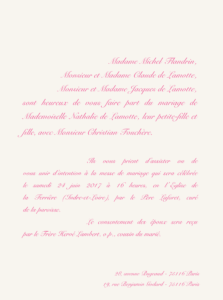 Madame Michel Flandrin,
Monsieur et Madame Claude de Lamotte,
Monsieur et Madame Jacques de Lamotte,
sont heureux de vous faire part du mariage de
Mademoiselle Nathalie de Lamotte, leur petite-fille et
fille, avec Monsieur Christian Fouchère.
Ils vous prient d'assister ou de
vous unir d'intention à la messe de mariage qui sera célébrée
le samedi 24 juin 2017 à 16 heures, en l'Église de
la Ferrière (Indre-et-Loire), par le Père Lefèvre, curé
de la paroisse.
Le consentement des époux sera reçu
par le Frère Hervé Lambert, o.p., cousin du marié.
26, avenue Raynaud - 75116 Paris
19, rue Benjamin Godard - 75116 Paris